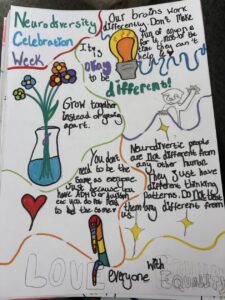 Neurodiversity
Celebration
Week
Our brains work
differently Don't Make
fun of anyone
for it, not be
they can't
help it
It is
okay
to be
different!
Grow together
instead of going
apart.
You don't
need to be the
same as everyone.
Just because you
have ADHD or
you do not need
to be the same!
Neurodiverse people
are not different from
any other human.
They Just have
different thinking
patterns. Do Not treat
them any different from
us.
LOVE
With
everyone
EQUALITY